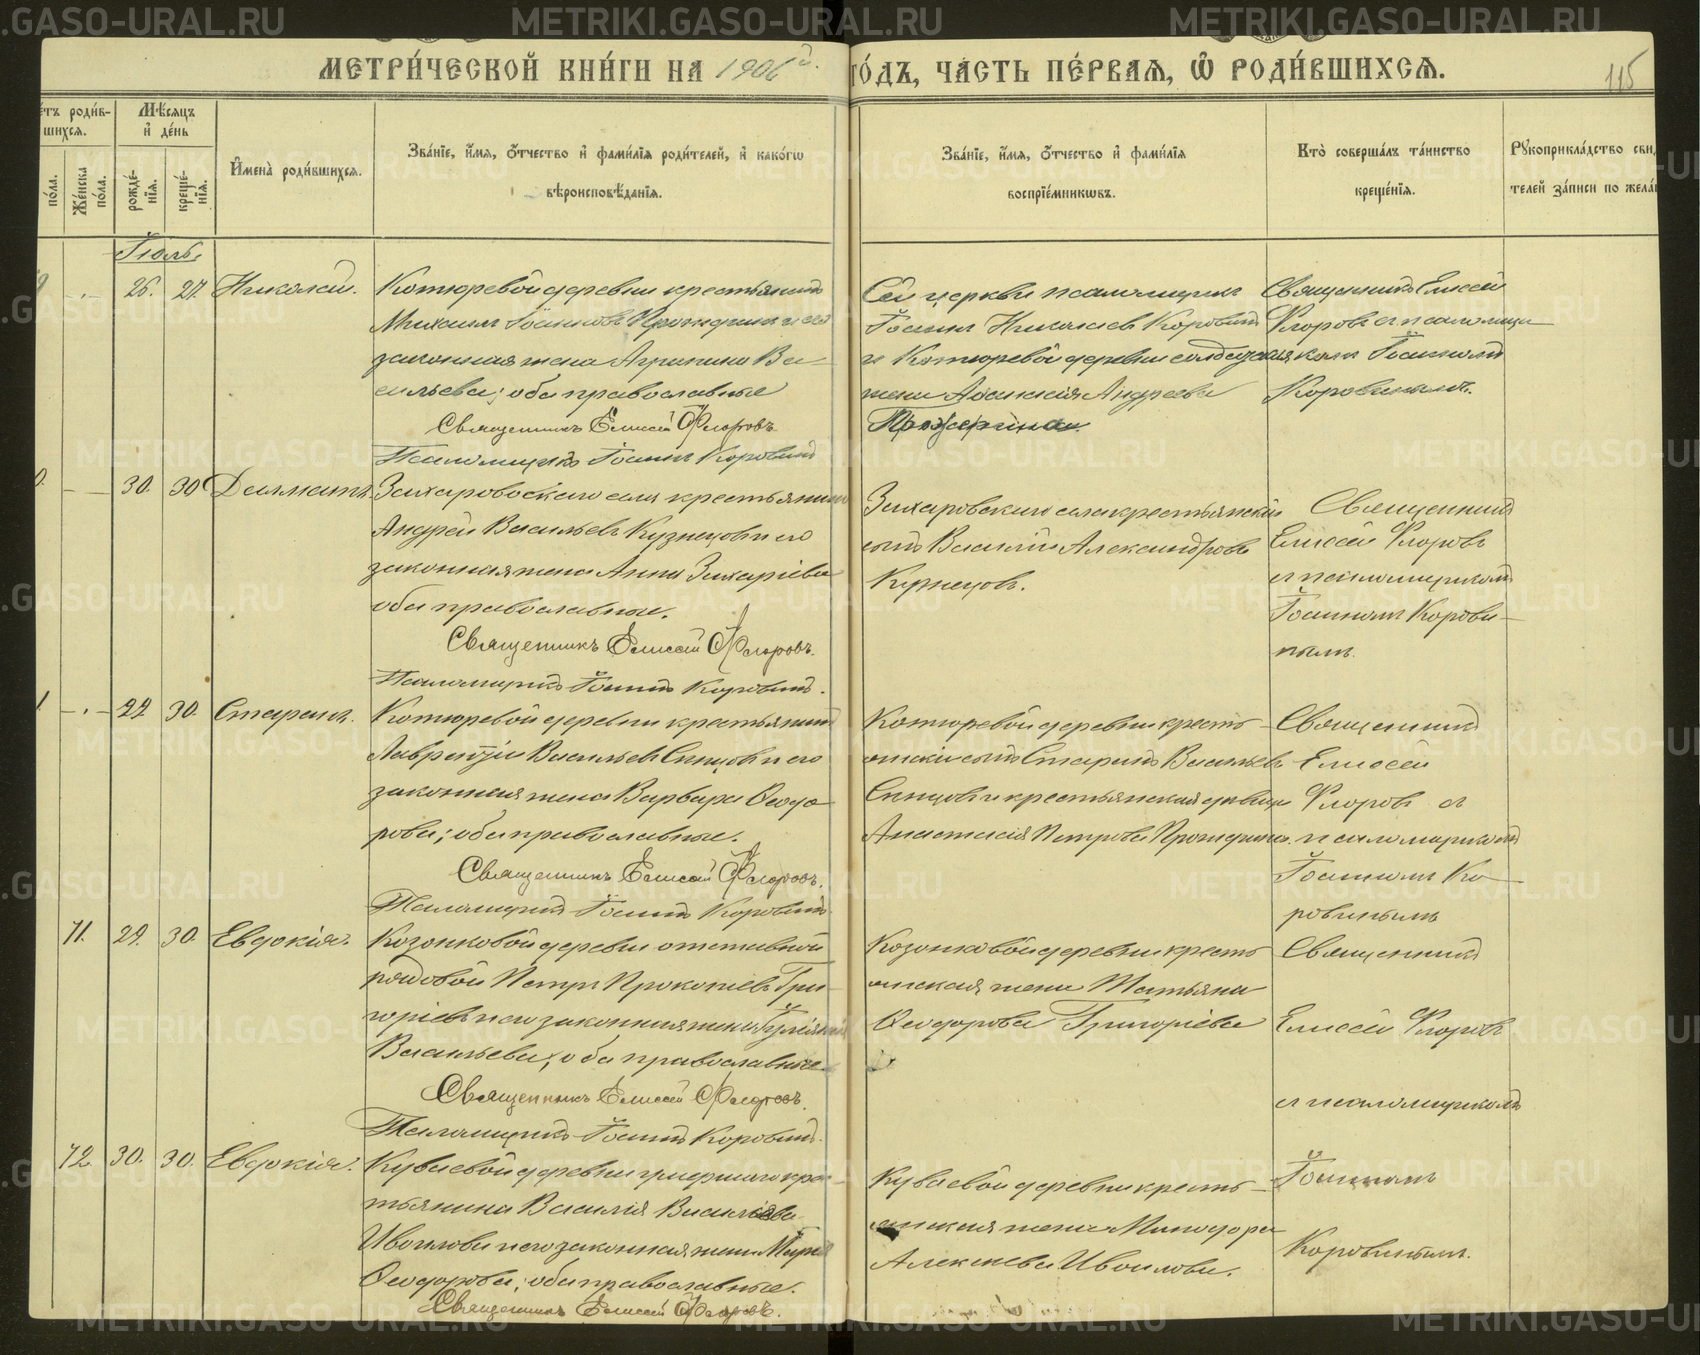 МЕТРИ́ЧЕСКОЙ КНИ́ГИ НА 1906й. ГО́ДЪ, ЧА́СТЬ ПЕ́РВАЯ, Ѡ РОДИ́ВШИХСЯ.
115
етъ роди́вшихся.
Мѣ́сяцъ и де́нь
по́ла.
Же́нска по́ла.
рожде́нїя.
креще́нїя.
И҆мена̀ роди́вшихся.
Зва́нїе, и҆́мя, ѻ҆́тчество и҆ фами́лїя роди́телей, и҆ како́гѡ
вѣроисповѣ́данїя.
Зва́нїе, и҆́мя, ѻ҆́тчество и҆ фами́лїя
воспрїе́мникѡвъ.
Кто̀ соверша́лъ та́инство
креще́нїя.
Рꙋкоприкла́дство сви
телей за́писи по жела
Іюль.
26. 27. Николай.
Котюревой деревни крестьянинъ
Михаилъ Іоанновъ Прожеринъ и его
законная жена Агрипина Ва-
сильева; оба православные
Священникъ Елисей Флоровъ
Псаломщикъ Іоаннъ Коровинъ
Сей церкви псаломщикъ
Іоаннъ Николаевъ Коровинъ
и Котюревой деревни солдатская
жена Андреева
Прожерина.
Священникъ Елисей
Флоровъ съ псаломщи
комъ Іоанномъ
Коровинымъ.
30. 30 Далматъ.
Захаровскаго села крестьянинъ
Андрей Васильевъ Кузнецовъ и его
законная жена Анна Захаріева
оба православные.
Священникъ Елисей Флоровъ.
Псаломщикъ Іоаннъ Коровинъ.
Захаровскаго села крестьянскій
сынъ Василій Александровъ
Кузнецовъ.
Священникъ
Елисей Флоровъ
съ псаломщикомъ
Іоанномъ Корови-
нымъ.
22 30.
Котюревой деревни крестьянинъ
Лаврентій Васильевъ Сенцовъ и его
законная жена Варвара Ѳеодо
рова; оба православные.
Священникъ Елисей Флоровъ.
Псаломщикъ Іоаннъ Коровинъ
Котюревой деревни кресть-
янскій сынъ Васильевъ
Сенцовъ и крестьянская дѣвица
Анастасія Петрова Прожерина.
Священникъ
Елисей
Флоровъ съ
псаломщикомъ
Іоанномъ Ко-
ровинымъ
71. 29. 30. Евдокія.
Козонковой деревни отставной
рядовой Петръ Прокопіевъ Гри-
горіевъ и его законная жена Іуліанія
Васильева; оба православные
Священникъ Елисей Флоровъ.
Псаломщикъ Іоаннъ Коровинъ.
Козонковой деревни кресть
янская жена Татьяна
Ѳеодорова Григоріева
Священникъ
Елисей Флоровъ
съ псаломщикомъ
Іоанномъ
Коровинымъ.
72. 30. 30. Евдокія.
Куваевой деревни умершаго крес-
тьянина Василія Васильева
Ивоилова и его законная жена Марія
Ѳеодорова; оба православные.
Священникъ Елисей Флоровъ.
Куваевой деревни кресть-
янская жена Минодора
Алексѣева Ивоилова.
METRIKI.GASO-URAL.RU